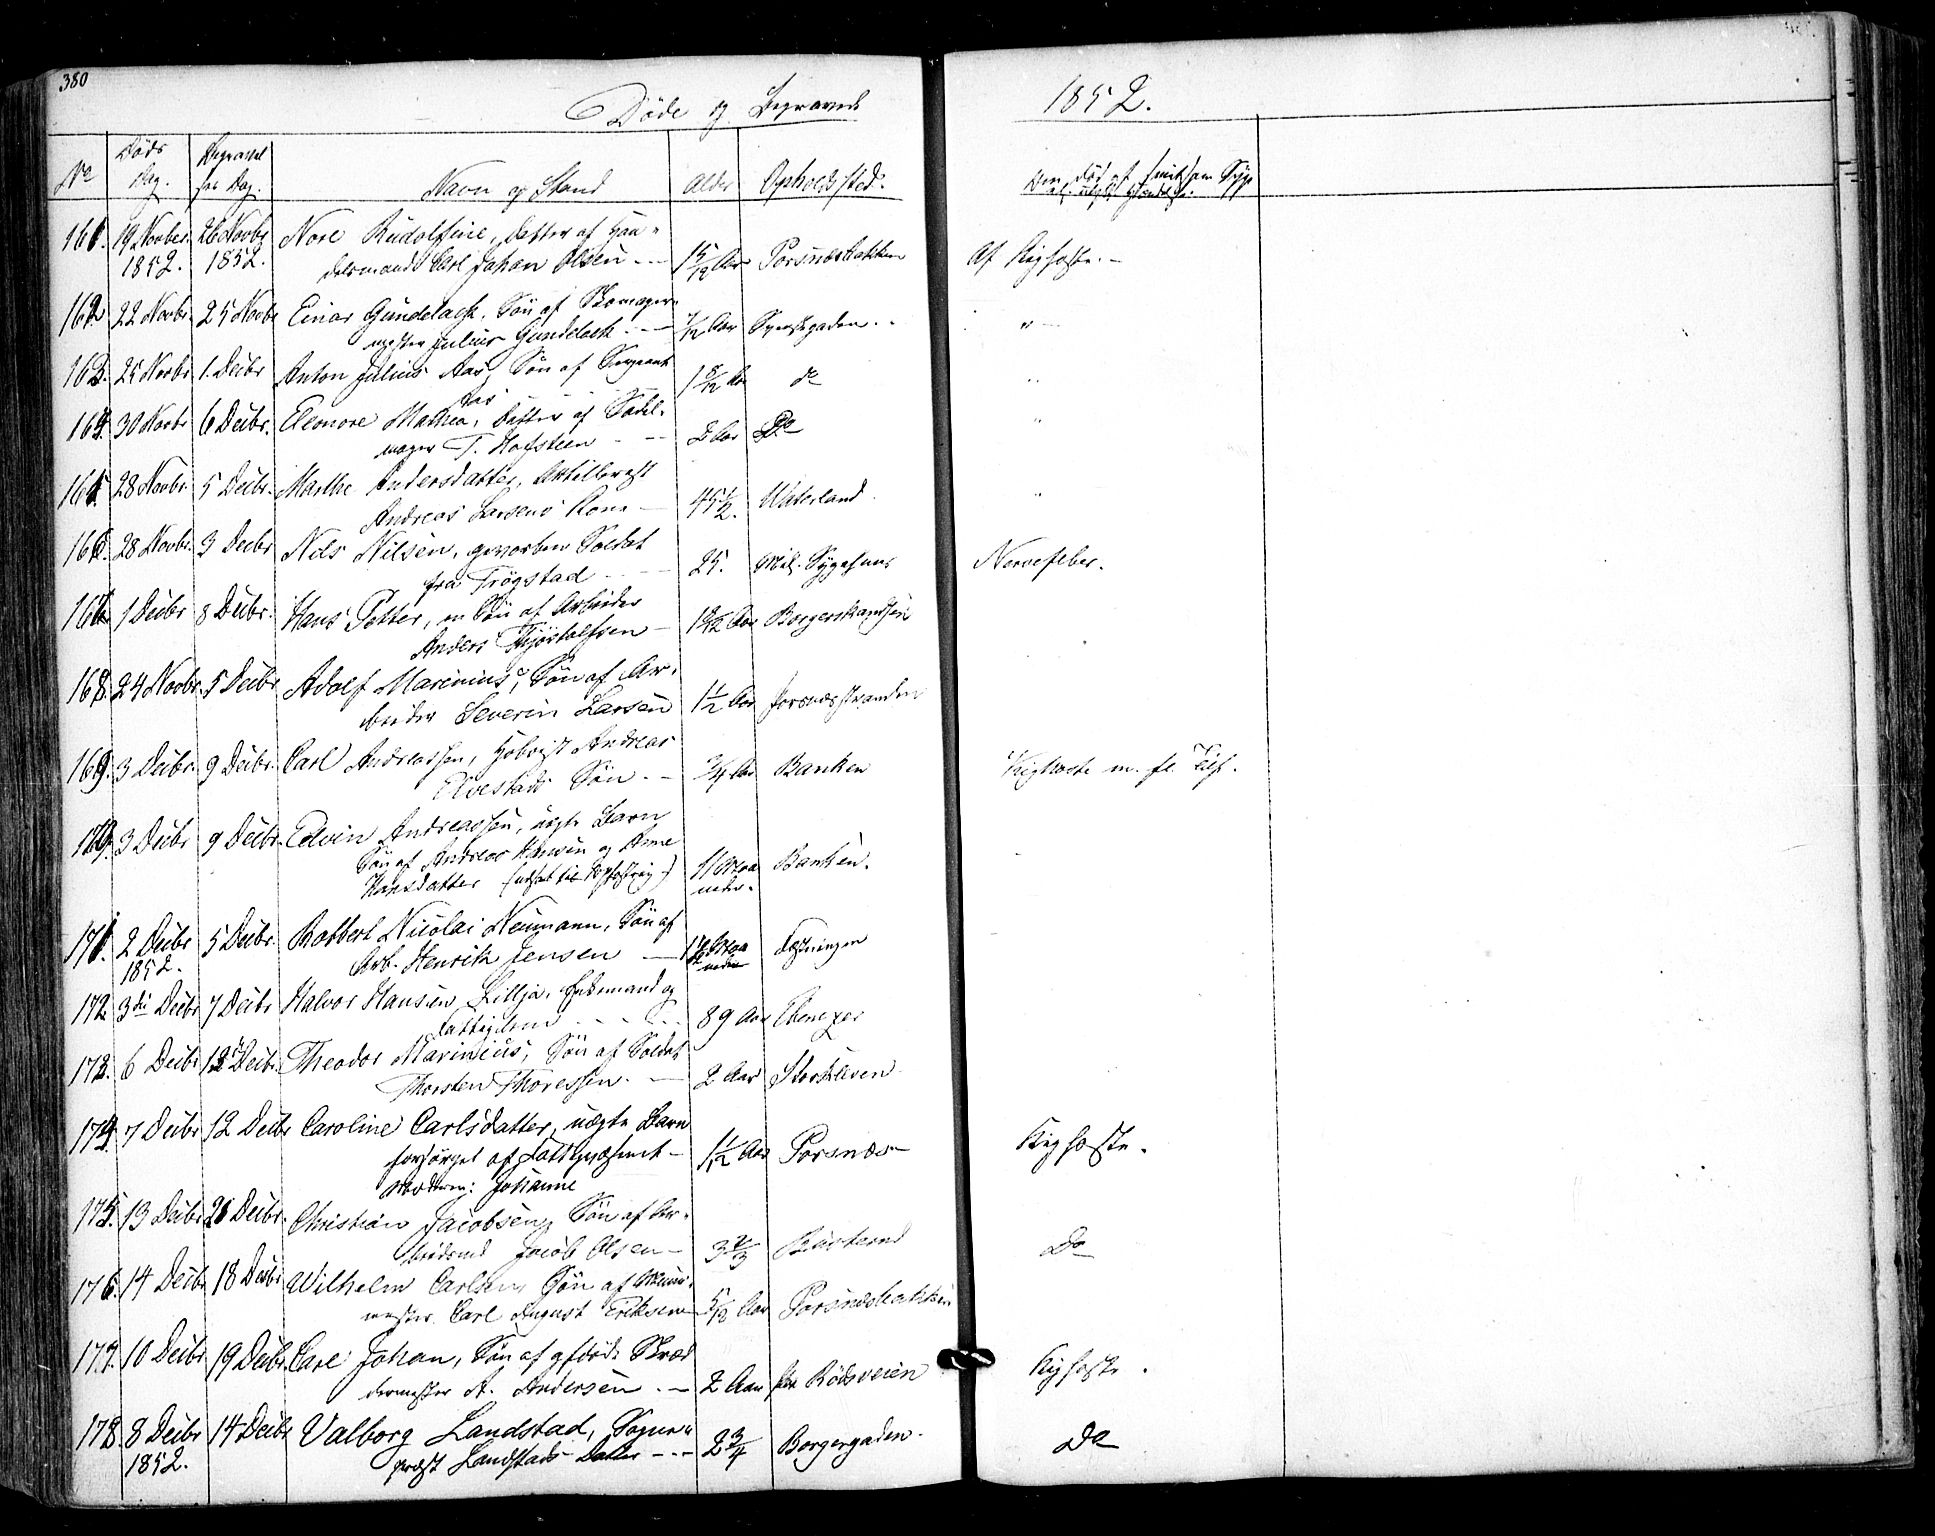 380
Døde og Begravede
1852.
No Døds Dag. Begravelsesdag. Navn og Stand Alder Opholdssted.
Om død af smitsom Syge
161. 19 Novber 26 Novbr Nore Rudolfine, Datter af Han-
1852. 1852. delsmand Carl Johan Olsen -- 1 5/12 Aar Porsnæsbakken Af Kighoste. -
162 22 Novbr. 25 Novbr Einar Gundelach. Søn af Skomager-
mester Julius Gundelach -- 7/12 Aar Syverstgaden. "
163. 25 Novbr 1. Decbr Anton Julius Aas, Søn af Sergeant
Aas 1 8/12 Aar do "
164. 30 Novbr 6 Decbr. Eleonore Mathea, Datter af Sadel-
mager T. Hofsteen -- 2 Aar Do "
165 28 Novbr. 5 Decbr. Marthe Andersdatter, Artillerist
Andreas Larsens Kone - 45 1/2. Waterland "
166 28 Novbr. 3 Decbr Nils Nilsen, gevorben Soldat
fra Trøgstad -- 25. Mil. Sygehuus Nervefeber.
1 Decbr 8 Decbr. Hans Petter, en Søn af Arbeider
Anders Kjøstolfsen - Aar Borgerskandsen
168. 24 Novbr. 5 Decbr Adolf Marinius, Søn af Ar-
beider Severin Larsen 1 1/2 Aar Porsnæsstranden
169. 3 Decbr. 9 Decbr. Carl Andreassen, Høvrist Andreas
Søn. - 3/4 Aar Banken Kighoste m. fl. Tilf.
170. 3 Decbr 9 Decbr. Edvin Andreassen, uægte Barn
Søn af Andreas Hansen og Anne
Hansdatter (udsat til Opfostring) 11 Maaneder. Banken.
171. 2 Decbr 5 Decbr. Robbert Nicolai Neumann, Søn af
1852. Arb. Henrik Jensen - Fæstningen
172 3die Decbr 7 Decbr Halvor Hansen Lillja, Enkemand og
Fattiglem -- 89 Aar Ebenezer
173. 6 Decbr 12 Decbr. Theodor Marinius, Søn af Soldat
Thorsten Thoressen. - 2 Aar Storkleven
174. 7 Decbr 12 Decbr Caroline Carlsdatter, uægte Barn
forsørget af Fattigvæsenet -
Moderen: Johanne 1 1/12 Aar Porsnæs Kighoste.
175. 13 Decbr 21 Decbr. Christian Jacobsen, Søn af Ar-
beidsmd Jacob Olsen - 3 2/3 Do
176. 14 Decbr 18 Decbr Wilhelm Carlsen, Søn af Muur-
mester Carl August Eriksen - Aar Porsnæsbakken
177. 10 Decbr 19 Decbr. Carl Johan, Søn af afdøde Skræd
dermester A. Andersen. - 2 Aar Rødsveien Kighoste.
178. 8 Decbr 14 Decbr Valborg Landstad, Sogne-
1852. præst Landstads Datter --- 2 3/4 Borgergaden. Do